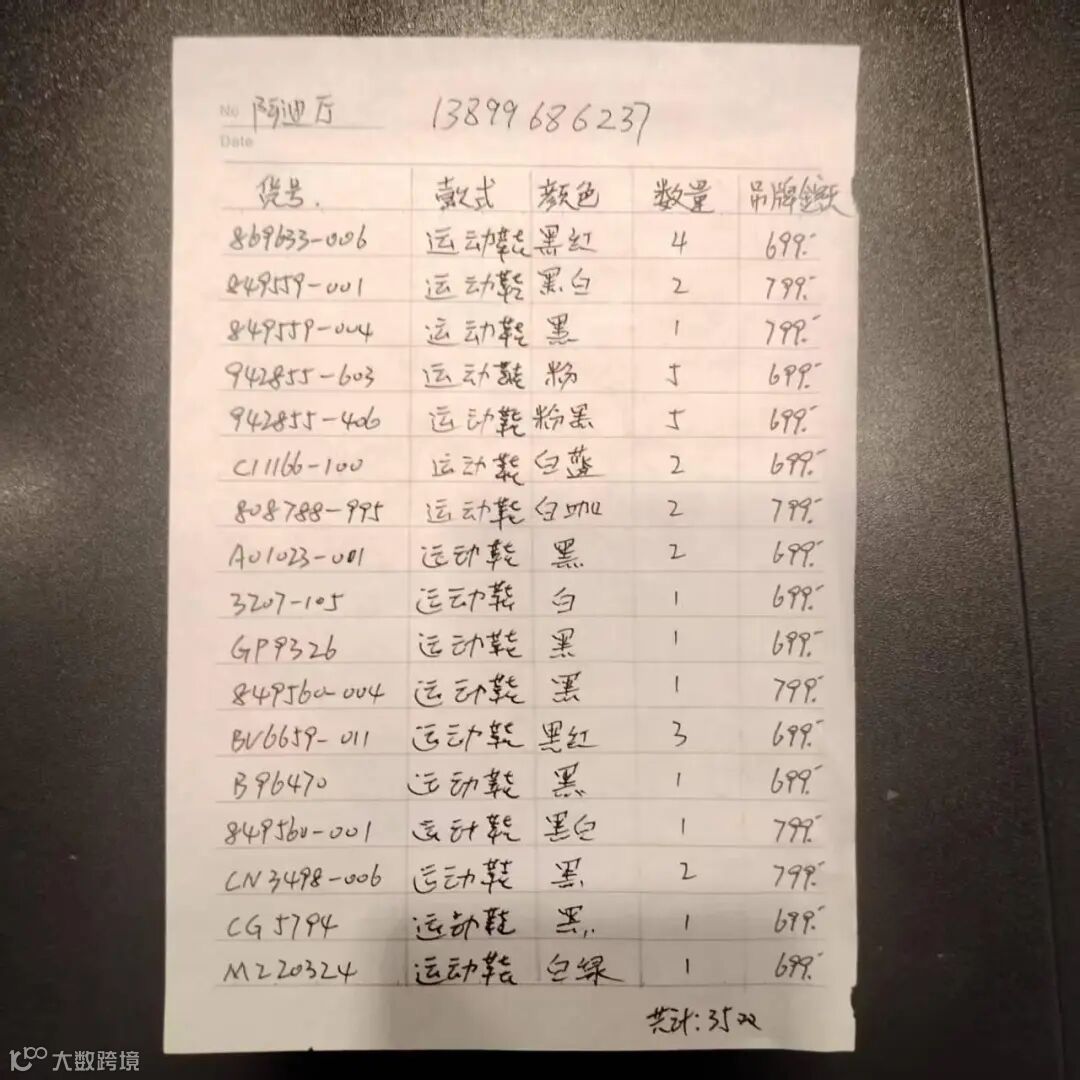 No 阿迪厅 13899686237
Date
货号. 款式 颜色 数量 吊牌金额
869633-006 运动鞋 黑红 4 699.-
849559-001 运动鞋 黑白 2 799.-
849559-004 运动鞋 黑 1 799.-
942855-603 运动鞋 粉 5 699.-
942855-406 运动鞋 粉黑 5 699.-
C11166-100 运动鞋 白蓝 2 699.-
808788-995 运动鞋 白咖 2 799.-
A01023-001 运动鞋 黑 2 699.-
3207-105 运动鞋 白 1 699.-
GP9326 运动鞋 黑 1 699.-
849560-004 运动鞋 黑 1 799.-
BV6659-011 运动鞋 黑红 3 699.-
B96470 运动鞋 黑 1 699.-
849560-001 运动鞋 黑白 1 799.-
CN3498-006 运动鞋 黑 2 799.-
CG5794 运动鞋 黑 1 699.-
M220324 运动鞋 白绿 1 699.-
共计:35双
大数跨境